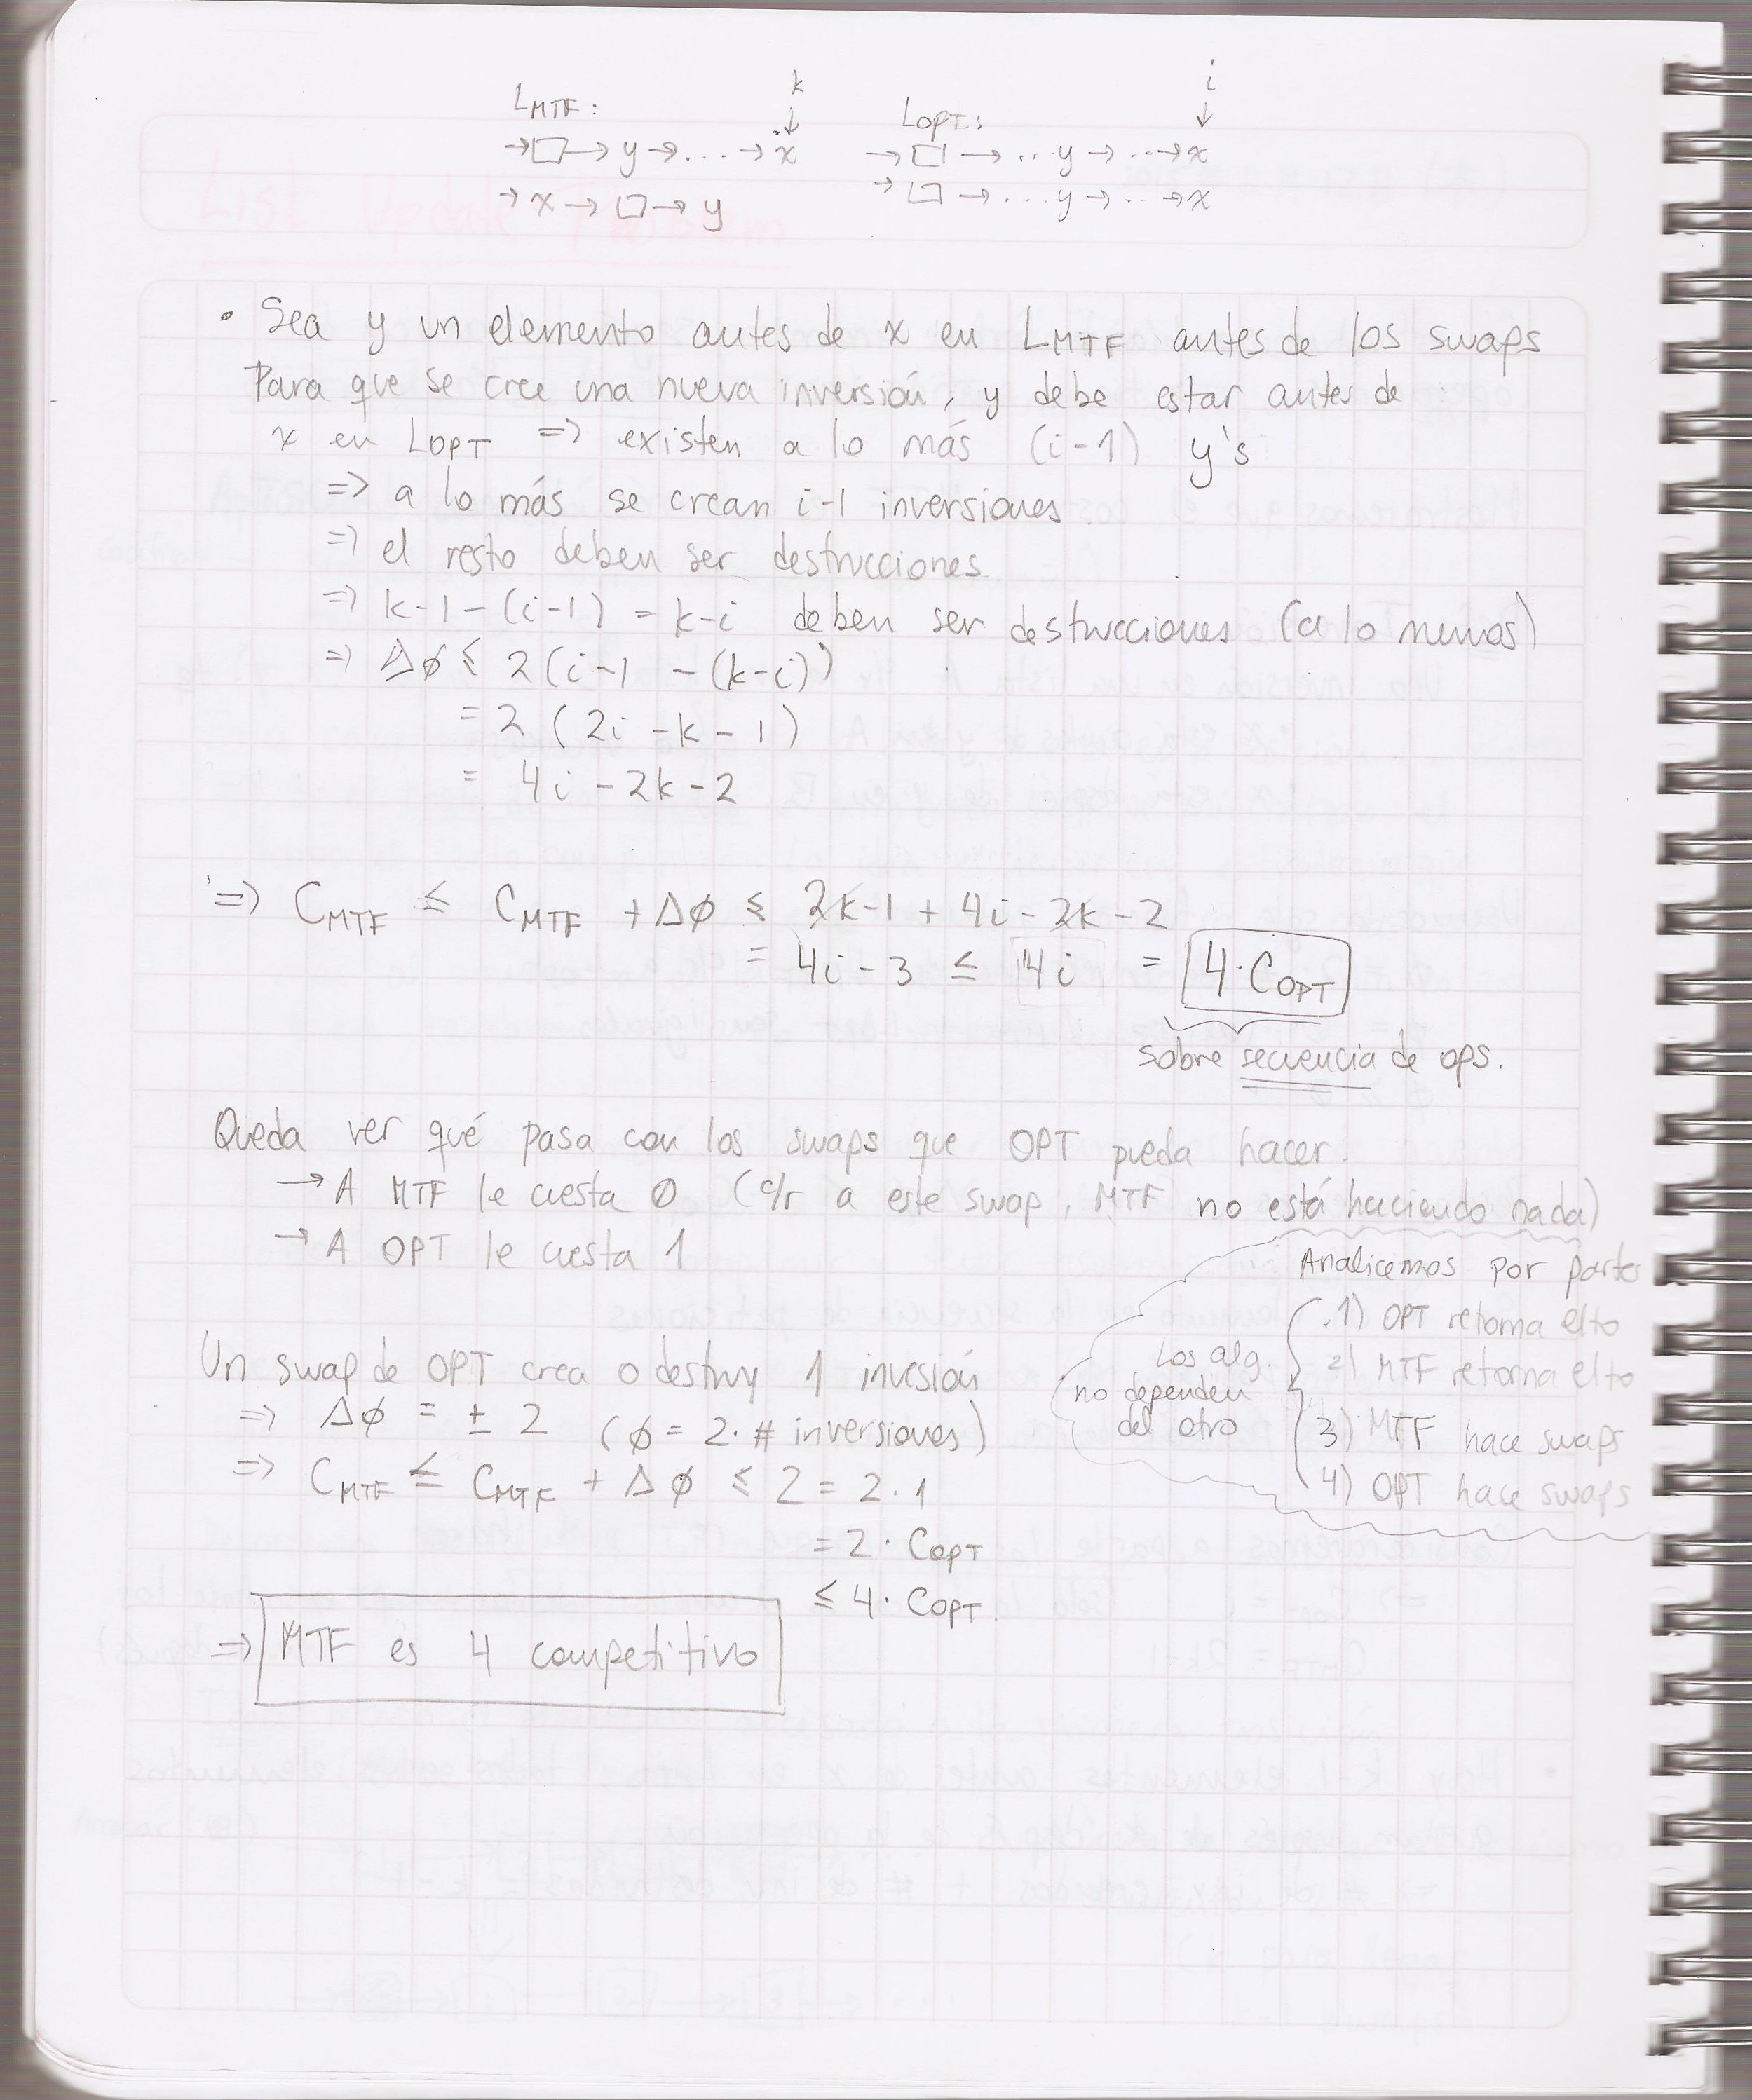 L_MTF: k L_OPT: i
→□→ y →...→ x →□→ ...y → ...→ x
→ x → □ → y →□→ ...y → ..→ x
List Update Problem
• Sea y un elemento antes de x en L_MTF antes de los swaps
Para que se cree una nueva inversión, y debe estar antes de
x en L_OPT => existen a lo más (i-1) y's
=> a lo más se crean i-1 inversiones
=> el resto deben ser destrucciones
=> k-1-(i-1) = k-i deben ser destrucciones (a lo menos)
=> Δϕ ≤ 2(i-1 -(k-i))
= 2 (2i - k - 1)
= 4i - 2k - 2
=> C_MTF ≤ C_MTF + Δϕ ≤ 2k-1 + 4i - 2k - 2
= 4i - 3 ≤ 4i = 4·C_OPT
sobre secuencia de ops.
Queda ver qué pasa con los swaps que OPT pueda hacer.
→ A MTF le cuesta 0 (c/r a este swap, MTF no está haciendo nada)
→ A OPT le cuesta 1
Analicemos por partes
1) OPT retorna elto
2) MTF retorna elto
3) MTF hace swaps
4) OPT hace swaps
Los alg.
no dependen
del otro
Un swap de OPT crea o destruy 1 invesión
=> Δϕ = ± 2 (ϕ = 2·# inversiones)
=> C_MTF ≤ C_MTF + Δϕ ≤ 2 = 2·1
= 2·C_OPT
≤ 4·C_OPT.
=> MTF es 4 competitivo